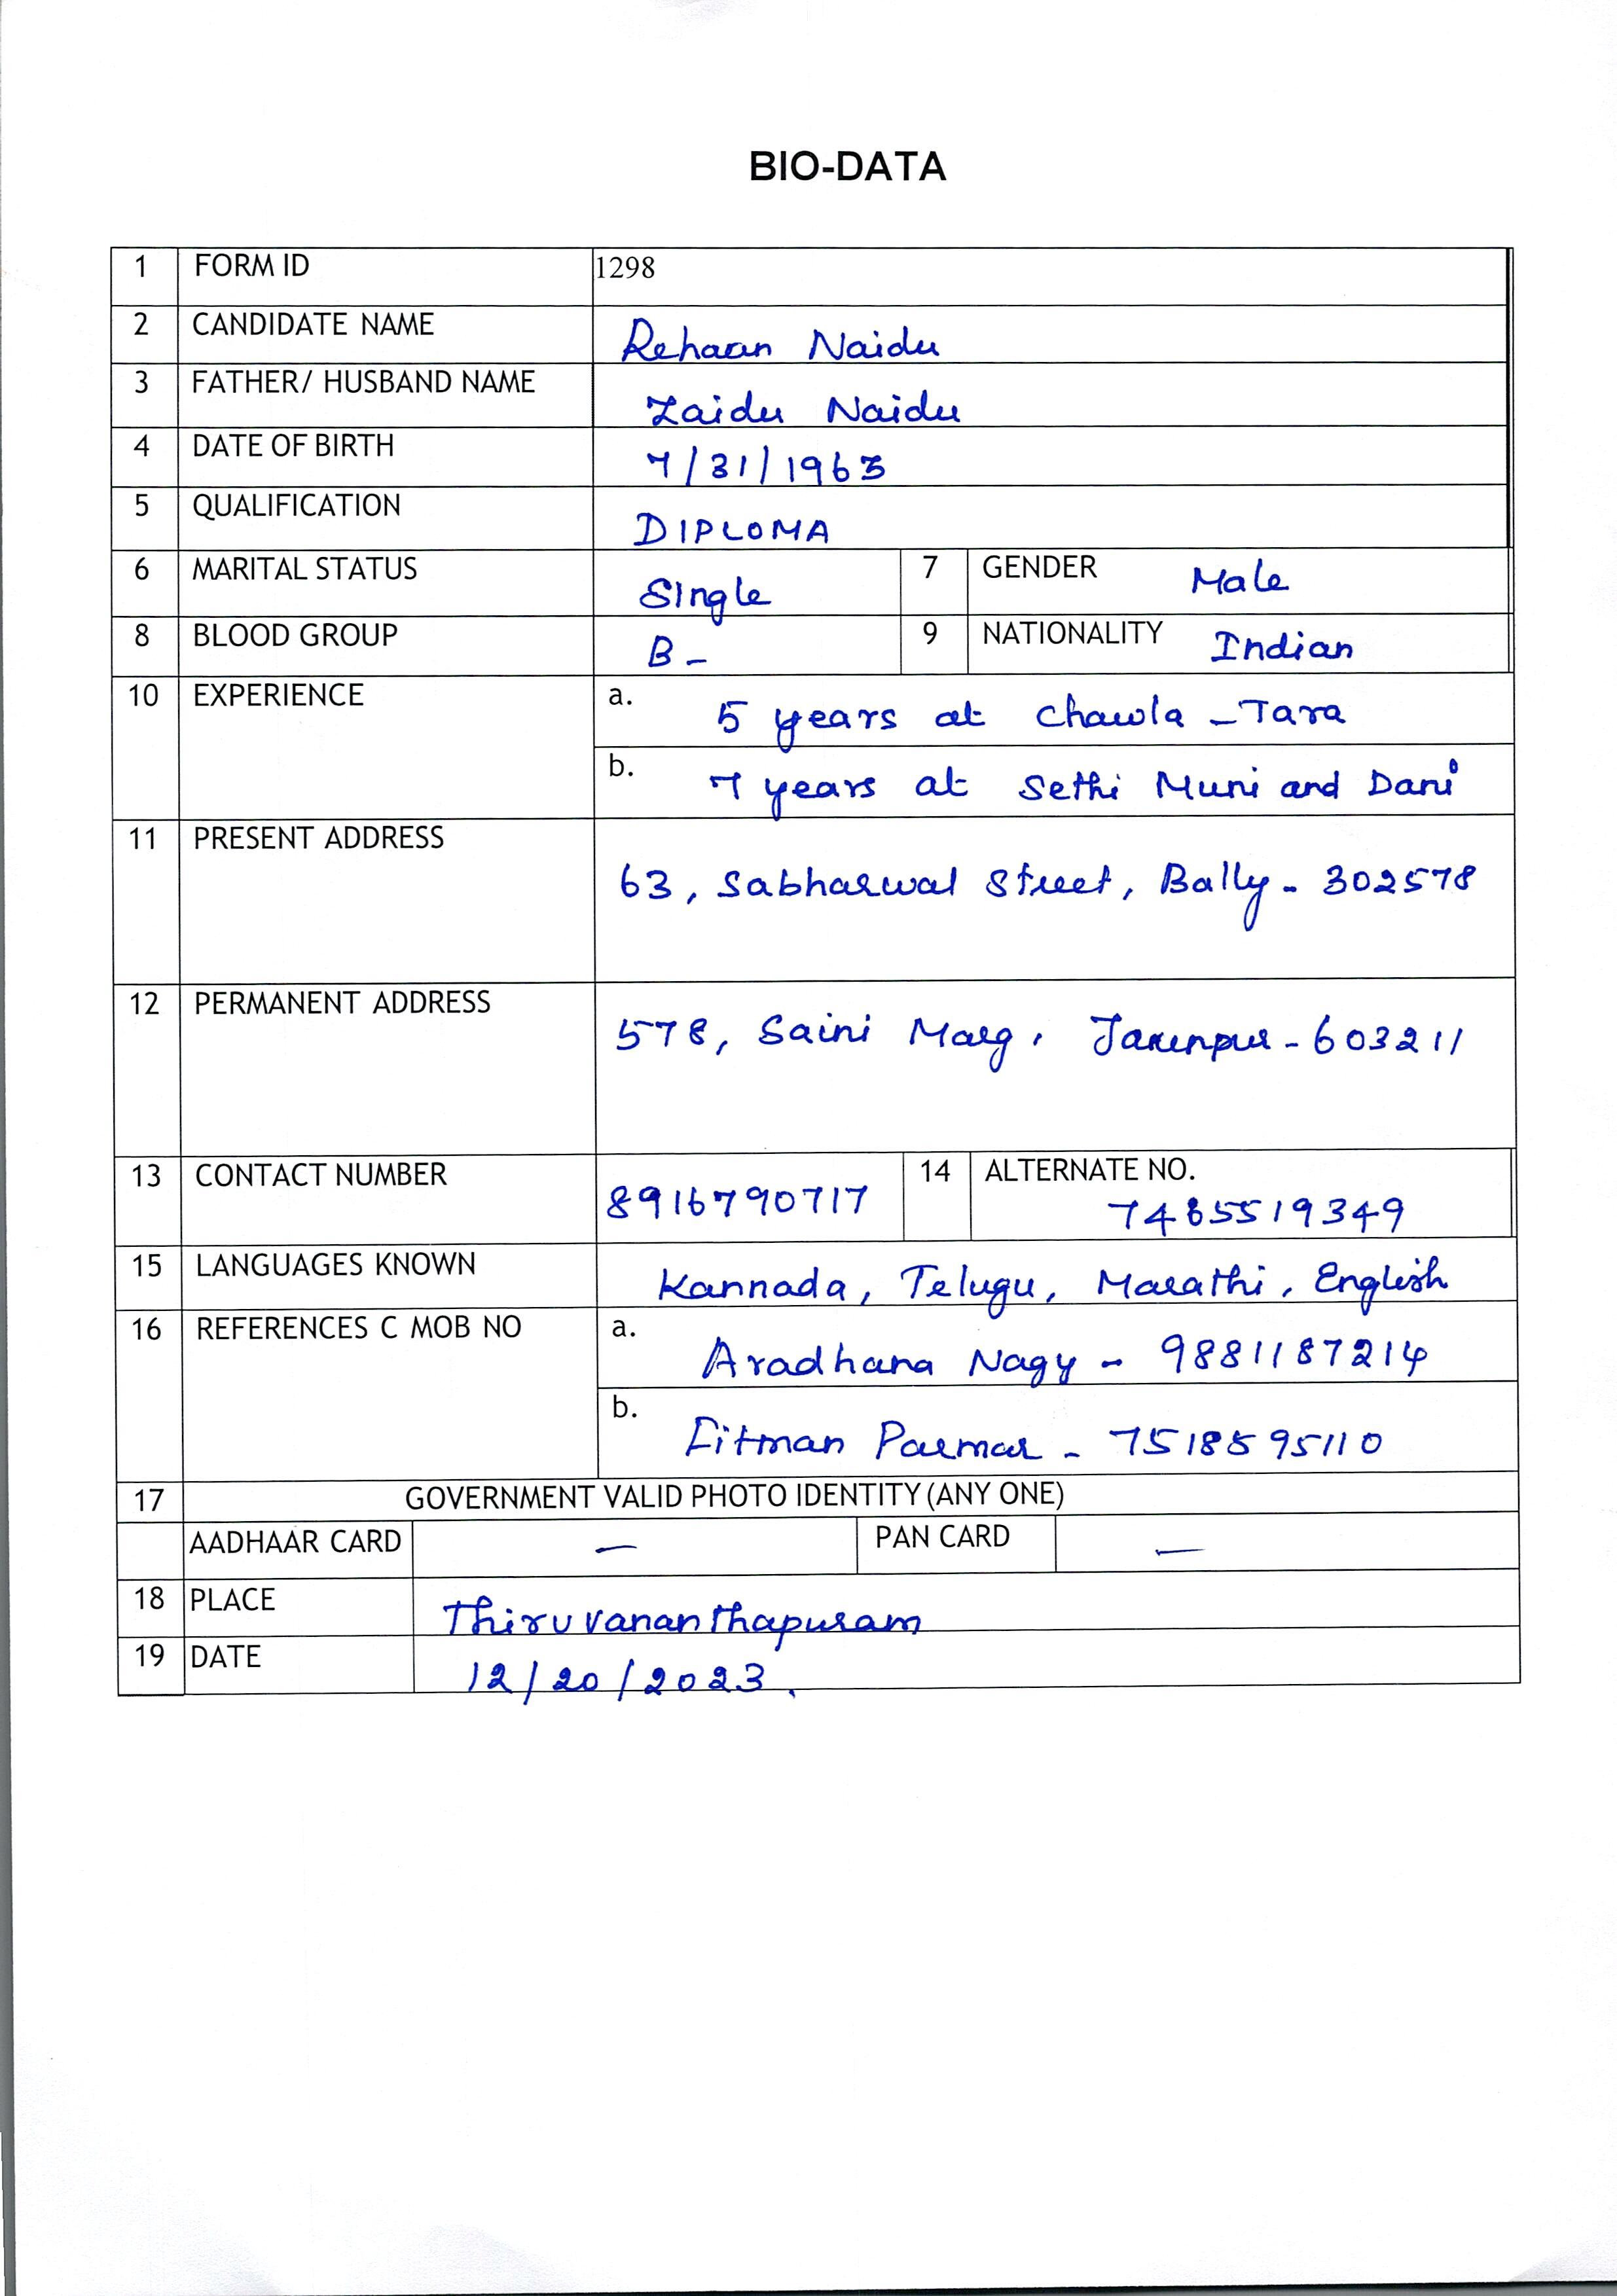 BIO-DATA
1 FORM ID 1298
2 CANDIDATE NAME Rehaan Naidu
3 FATHER/ HUSBAND NAME Zaidu Naidu
4 DATE OF BIRTH 7/31/1963
5 QUALIFICATION DIPLOMA
6 MARITAL STATUS Single 7 GENDER Male
8 BLOOD GROUP B- 9 NATIONALITY Indian
10 EXPERIENCE a. 5 years at Chawla -Tara
b. 7 years at Sethi Muni and Dani
11 PRESENT ADDRESS 63, Sabharwal Street, Bally - 302578
12 PERMANENT ADDRESS 578, Saini Marg, - 603211
13 CONTACT NUMBER 8916790717 14 ALTERNATE NO.
15 LANGUAGES KNOWN Kannada, Telugu, Marathi, English
16 REFERENCES C MOB NO a. Aradhana Nagy - 9881187214
b. Parmar - 7518595110
17 GOVERNMENT VALID PHOTO IDENTITY (ANY ONE)
AADHAAR CARD — PAN CARD —
18 PLACE Thiruvananthapuram
19 DATE 12/20/2023.